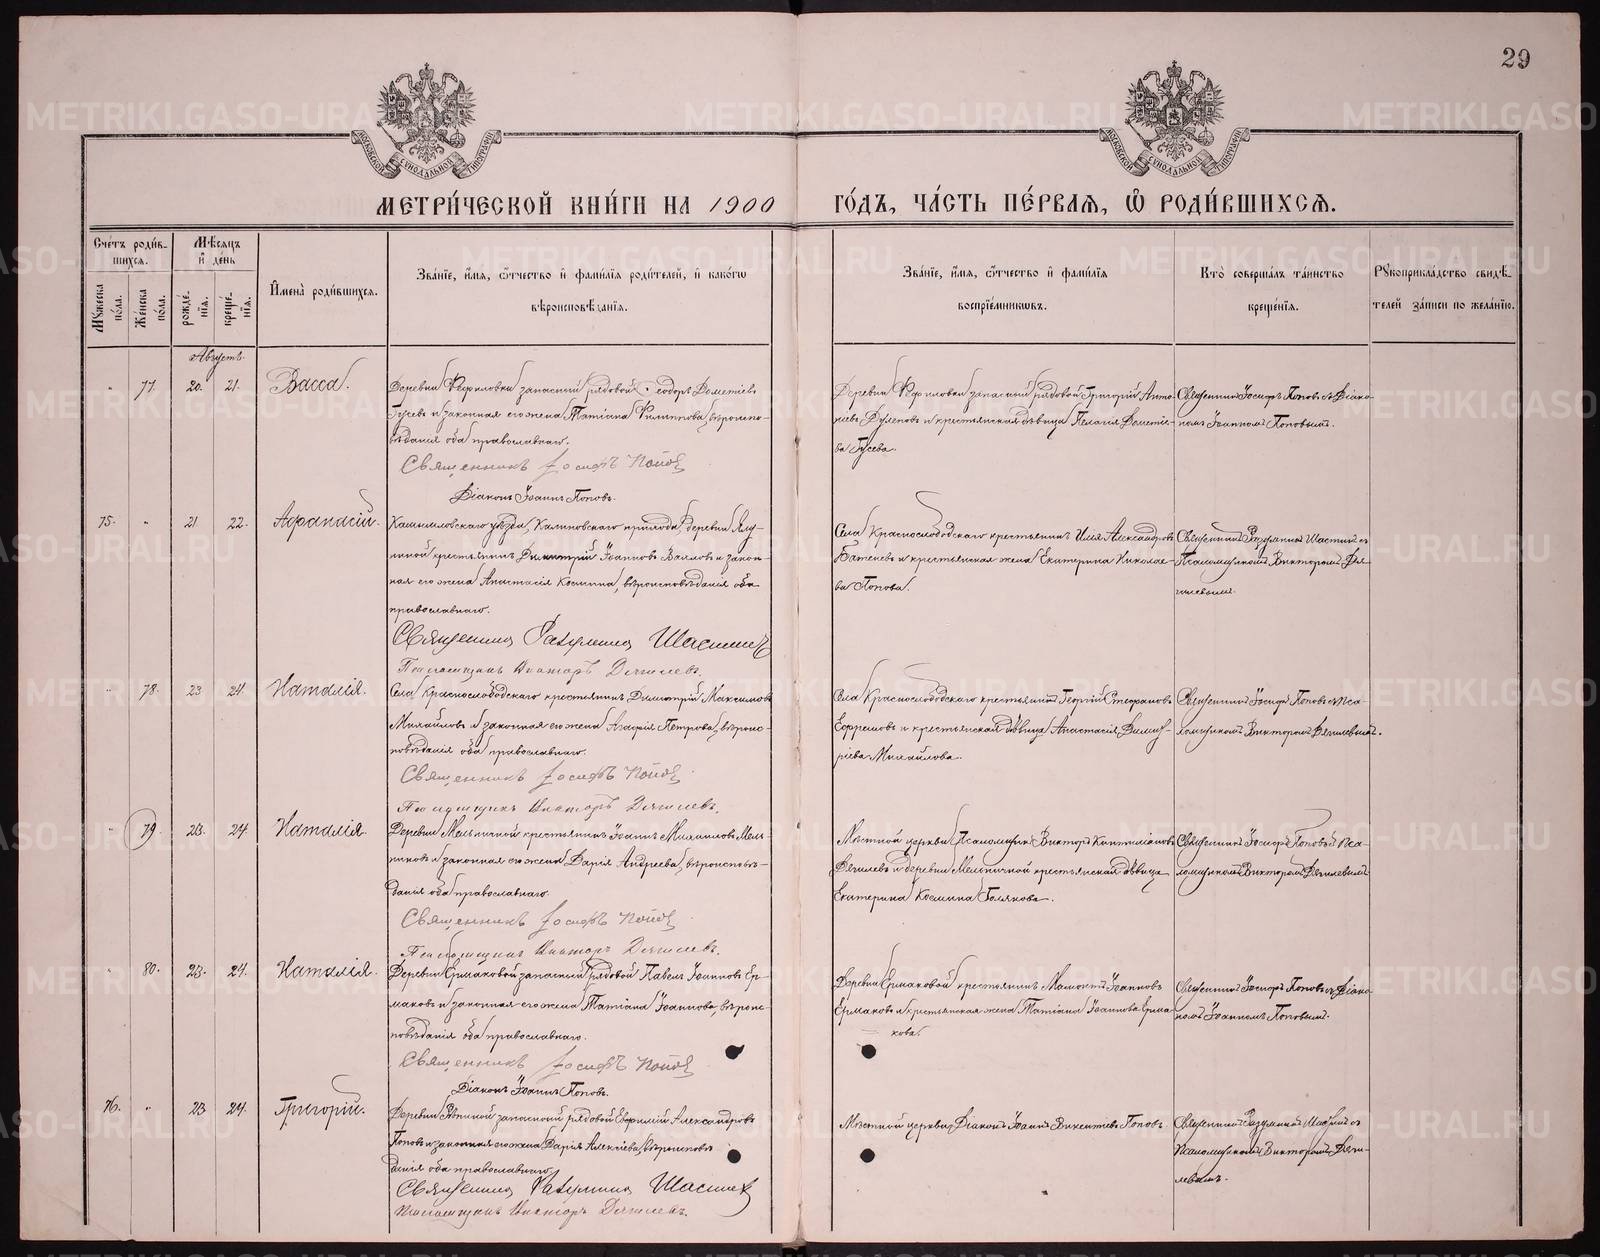 29
МОСКОВСКОЙ СУНОДАЛЬНОЙ ТИПОГРАФІИ
МОСКОВСКОЙ СУНОДАЛЬНОЙ ТИПОГРАФІИ
МЕТРИ́ЧЕСКОЙ КНИ́ГИ НА 1900 ГО́ДЪ, ЧА́СТЬ ПЕ́РВАѦ, Ѡ РОДИ́ВШИХСѦ.
Сче́тъ роди́в-
шихсѧ.
Мꙋжеска по́ла.
Же́нска по́ла.
Мѣ́сѧцъ
и҆ де́нь
рожде́-нїѧ.
креще́-нїѧ.
И҆мена̀ роди́вшихсѧ.
Зва́нїе, и҆́мѧ, ѻ҆́тчество и҆ фами́лїѧ роди́телей, и҆ како́гѡ
вѣроисповѣ́данїѧ.
Зва́нїе, и҆́мѧ, ѻ҆́тчество и҆ фами́лїѧ
воспрїе́мникѡвъ.
Кто̀ соверша́лъ та́инство
креще́нїѧ.
Рꙋкоприкла́дство свидѣ́-
телей за́писи по жела́нїю.
Августъ.
77. 20. 21. Васса.
Деревни запасный рядовой Ѳеодоръ Дометіевъ
Гусевъ и законная его жена Татіана Филиппова, вѣроиспо-
вѣданія оба православнаго.
Священникъ Іосифъ Поповъ
Діаконъ Іоаннъ Поповъ.
Деревни запасный рядовой Григорій Анто-
ніевъ и крестьянская дѣвица Пелагія Дометіе-
ва Гусева.
Священникъ Іосифъ Поповъ съ Діако-
номъ Іоанномъ Поповымъ.
75. " 21. 22. Аѳанасій.
Камышловскаго уѣзда, Калиновскаго прихода, деревни
крестьянинъ Димитрій Іоанновъ и закон-
ная его жена Анастасія Космина, вѣроисповѣданія оба
православнаго.
Священникъ Шастинъ
Псаломщикъ Викторъ Дягилевъ.
Села Краснослободскаго крестьянинъ Илія Александровъ
и крестьянская жена Екатерина Николае-
ва Попова.
Священникъ Шастинъ съ
Псаломщикомъ Викторомъ Дя-
гилевымъ.
78. 23 24. Наталія.
Села Краснослободскаго крестьянинъ Димитрій Максимовъ
Михайловъ и законная его жена Петрова, вѣроис-
повѣданія оба православнаго.
Священникъ Іосифъ Поповъ
Псаломщикъ Викторъ Дягилевъ.
Села Краснослободскаго крестьянинъ Георгій Стефановъ
Ефремовъ и крестьянская дѣвица Анастасія Димит-
ріева Михайлова.
Священникъ Іосифъ Поповъ съ Пса-
ломщикомъ Викторомъ Дягилевымъ.
79. 23. 24. Наталія.
Деревни Мельничной крестьянинъ Іоаннъ Михаиловъ Мель-
никовъ и законная его жена Дарія Андреева, вѣроисповѣ-
данія оба православнаго.
Священникъ Іосифъ Поповъ
Псаломщикъ Викторъ Дягилевъ.
Мѣстной церкви Псаломщикъ Викторъ Капитоновъ
Дягилевъ и деревни Мельничной крестьянская дѣвица
Екатерина Космина
Священникъ Іосифъ Поповъ съ Пса-
ломщикомъ Викторомъ Дягилевымъ.
80. 23. 24. Наталія.
Деревни Ермаковой запасный рядовой Павелъ Іоанновъ Ер-
маковъ и законная его жена Татіана Іоаннова, вѣроис-
повѣданія оба православнаго.
Священникъ Іосифъ Поповъ
Діаконъ Іоаннъ Поповъ.
Деревни Ермаковой крестьянинъ Мамонтъ Іоанновъ
Ермаковъ и крестьянская жена Татіана Іоаннова Ерма-
кова.
Священникъ Іосифъ Поповъ съ Діако-
номъ Іоанномъ Поповымъ.
76. " 23 24. Григорій.
Деревни запасный рядовой Евфимій Александровъ
Поповъ и законная его жена Дарія Алексіева, вѣроисповѣ-
данія оба православнаго.
Священникъ Шастинъ
Псаломщикъ Викторъ Дягилевъ.
Мѣстной церкви Діаконъ Іоаннъ Викентіевъ Поповъ.
Священникъ Шастинъ съ
Псаломщикомъ Викторомъ Дяги-
левымъ.
METRIKI.GASO-URAL.RU